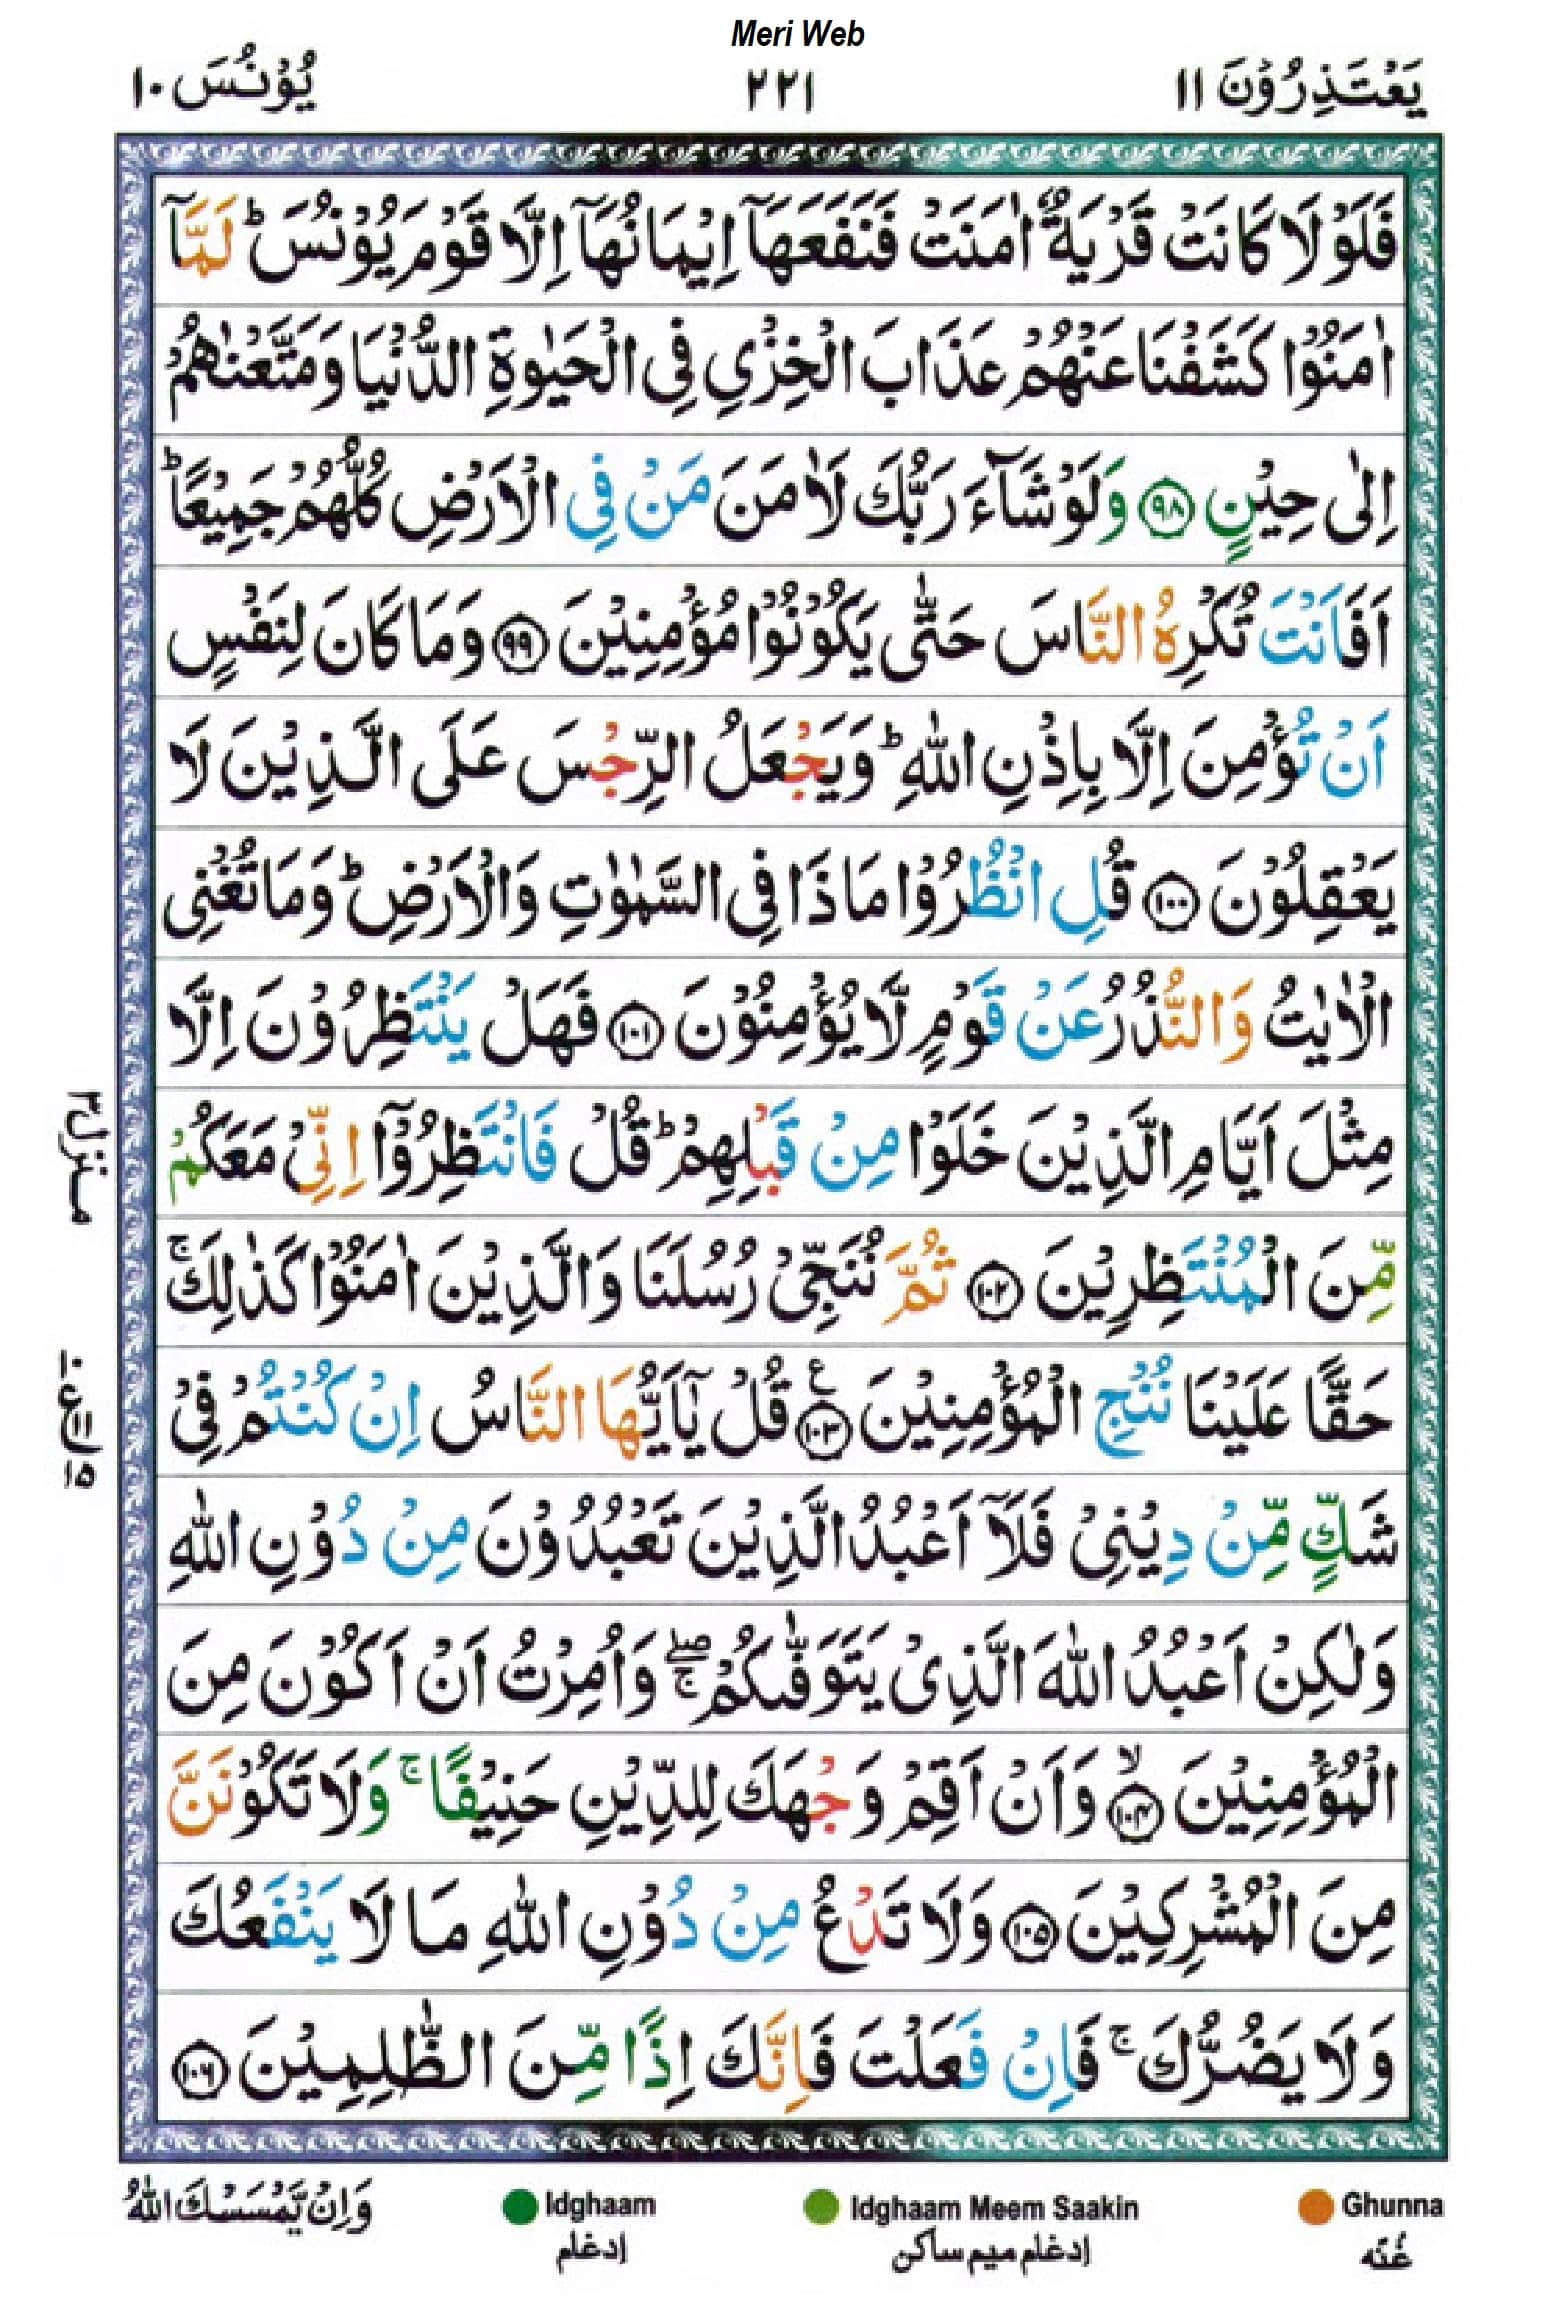 Meri Web
یَعْتَذِرُوْنَ ۱۱
۲۲۱
یُوْنُسَ ۱۰
فَلَوْلَا كَانَتْ قَرْیَةٌ اٰمَنَتْ فَنَفَعَهَاۤ اِیْمَانُهَاۤ اِلَّا قَوْمَ یُوْنُسَ ؕ لَمَّاۤ
اٰمَنُوْا كَشَفْنَا عَنْهُمْ عَذَابَ الْخِزْیِ فِی الْحَیٰوةِ الدُّنْیَا وَمَتَّعْنٰهُمْ
اِلٰی حِیْنٍ ۝۹۸ وَلَوْ شَآءَ رَبُّكَ لَاٰمَنَ مَنْ فِی الْاَرْضِ كُلُّهُمْ جَمِیْعًا ؕ
اَفَاَنْتَ تُكْرِهُ النَّاسَ حَتّٰی یَكُوْنُوْا مُؤْمِنِیْنَ ۝۹۹ وَمَا كَانَ لِنَفْسٍ
اَنْ تُؤْمِنَ اِلَّا بِاِذْنِ اللّٰهِ ؕ وَیَجْعَلُ الرِّجْسَ عَلَی الَّذِیْنَ لَا
یَعْقِلُوْنَ ۝۱۰۰ قُلِ انْظُرُوْا مَاذَا فِی السَّمٰوٰتِ وَالْاَرْضِ ؕ وَمَا تُغْنِی
الْاٰیٰتُ وَالنُّذُرُ عَنْ قَوْمٍ لَّا یُؤْمِنُوْنَ ۝۱۰۱ فَهَلْ یَنْتَظِرُوْنَ اِلَّا
مِثْلَ اَیَّامِ الَّذِیْنَ خَلَوْا مِنْ قَبْلِهِمْ ؕ قُلْ فَانْتَظِرُوْۤا اِنِّیْ مَعَكُمْ
مِّنَ الْمُنْتَظِرِیْنَ ۝۱۰۲ ثُمَّ نُنَجِّیْ رُسُلَنَا وَالَّذِیْنَ اٰمَنُوْا كَذٰلِكَ ۚ
حَقًّا عَلَیْنَا نُنْجِ الْمُؤْمِنِیْنَ ۝۱۰۳ ع قُلْ یٰۤاَیُّهَا النَّاسُ اِنْ كُنْتُمْ فِیْ
شَكٍّ مِّنْ دِیْنِیْ فَلَاۤ اَعْبُدُ الَّذِیْنَ تَعْبُدُوْنَ مِنْ دُوْنِ اللّٰهِ
وَلٰكِنْ اَعْبُدُ اللّٰهَ الَّذِیْ یَتَوَفّٰىكُمْ ۖۚ وَاُمِرْتُ اَنْ اَكُوْنَ مِنَ
الْمُؤْمِنِیْنَ ۝۱۰۴ۙ وَاَنْ اَقِمْ وَجْهَكَ لِلدِّیْنِ حَنِیْفًا ۚ وَلَا تَكُوْنَنَّ
مِنَ الْمُشْرِكِیْنَ ۝۱۰۵ وَلَا تَدْعُ مِنْ دُوْنِ اللّٰهِ مَا لَا یَنْفَعُكَ
وَلَا یَضُرُّكَ ۚ فَاِنْ فَعَلْتَ فَاِنَّكَ اِذًا مِّنَ الظّٰلِمِیْنَ ۝۱۰۶
منزل۳
وَاِنْ یَّمْسَسْكَ اللّٰهُ
Idghaam
Idghaam Meem Saakin
Ghunna
إدغام
إدغام میم ساکن
غُنّه